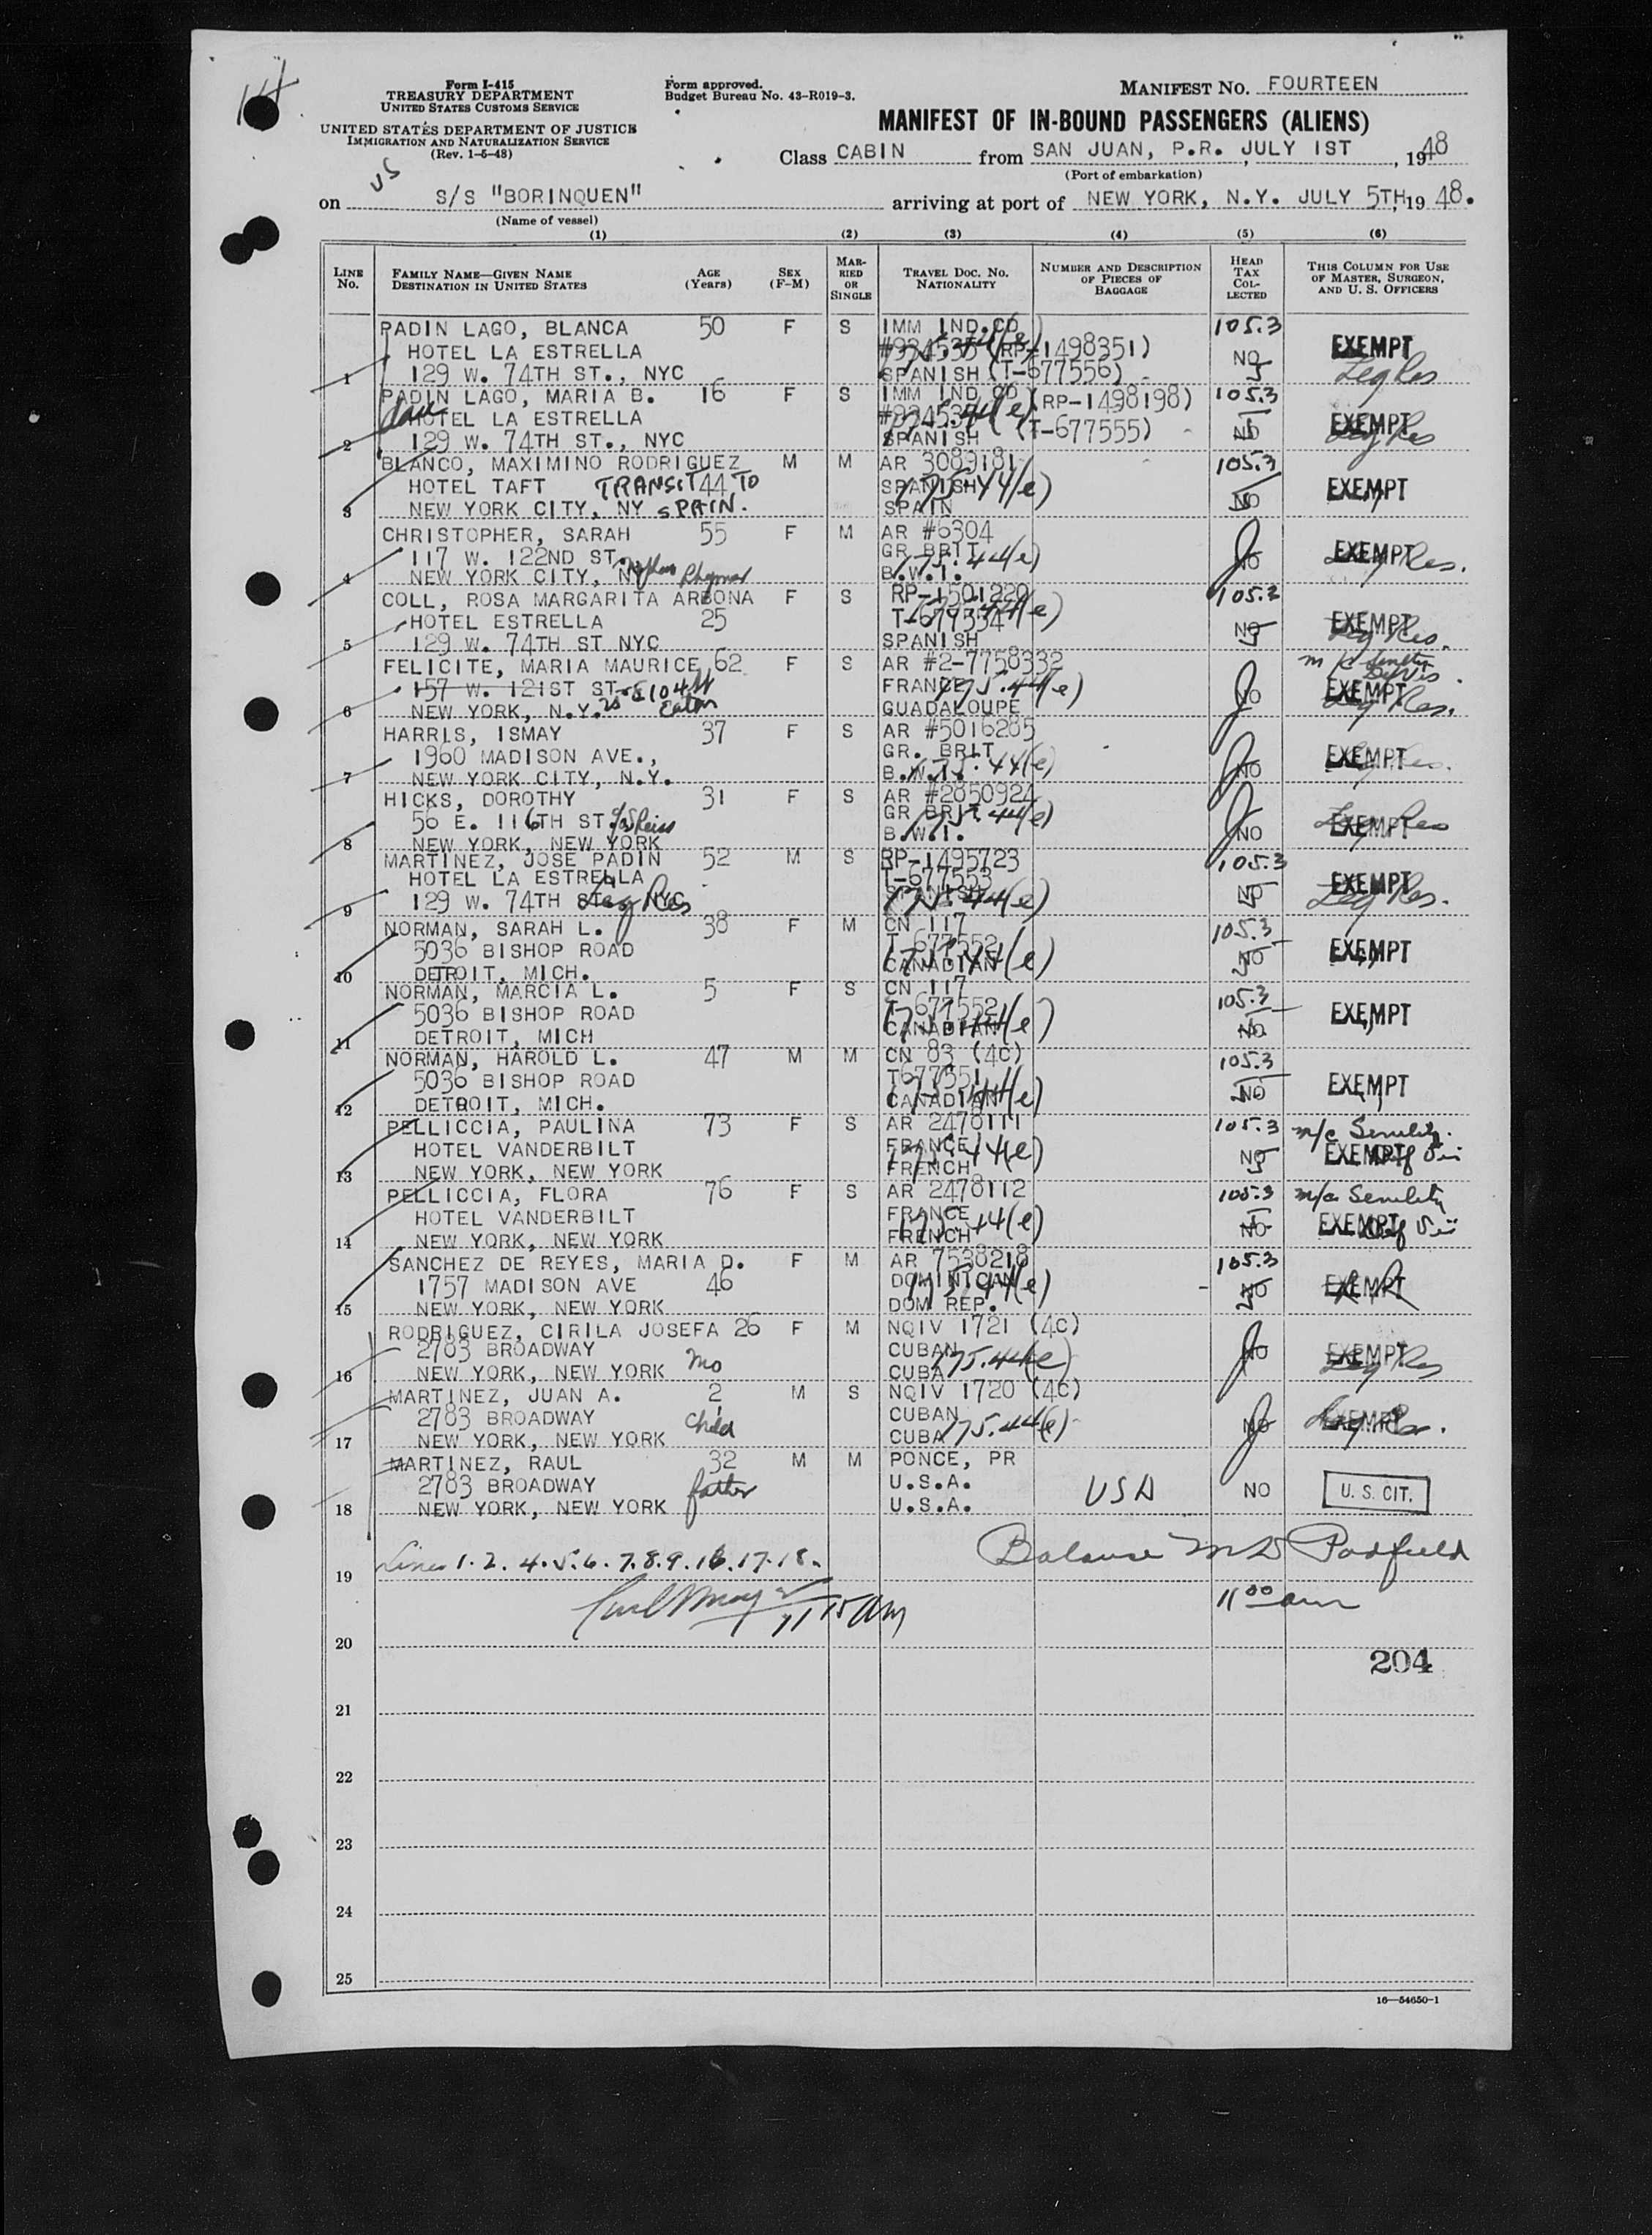 14
Form I-415
TREASURY DEPARTMENT
UNITED STATES CUSTOMS SERVICE
UNITED STATES DEPARTMENT OF JUSTICE
IMMIGRATION AND NATURALIZATION SERVICE
(Rev. 1-5-48)
Form approved.
Budget Bureau No. 43-R019-3.
MANIFEST NO. FOURTEEN
MANIFEST OF IN-BOUND PASSENGERS (ALIENS)
Class CABIN from SAN JUAN, P.R. JULY 1ST, 1948
(Port of embarkation)
US
on S/S "BORINQUEN" arriving at port of NEW YORK, N.Y. JULY 5TH, 19 48.
(Name of vessel)
(1) (2) (3) (4) (5) (6)
LINE No.
FAMILY NAME—GIVEN NAME
DESTINATION IN UNITED STATES
AGE (Years)
SEX (F-M)
MARRIED OR SINGLE
TRAVEL DOC. NO. NATIONALITY
NUMBER AND DESCRIPTION OF PIECES OF BAGGAGE
HEAD TAX COLLECTED
THIS COLUMN FOR USE OF MASTER, SURGEON, AND U. S. OFFICERS
PADIN LAGO, BLANCA 50 F S IMM IND.CD 105.3
HOTEL LA ESTRELLA (RP-1498351) NO EXEMPT
1 129 W. 74TH ST., NYC SPANISH (T-677556) Leg Res
PADIN LAGO, MARIA B. 16 F S IMM IND CD (RP-1498198) 105.3
dau HOTEL LA ESTRELLA NO EXEMPT
2 129 W. 74TH ST., NYC SPANISH (T-677555) Leg Res
BLANCO, MAXIMINO RODRIGUEZ M M AR 3089181 105.3
HOTEL TAFT TRANSIT 44 TO SPANISH 175.44(e) NO EXEMPT
3 NEW YORK CITY, NY SPAIN. SPAIN
CHRISTOPHER, SARAH 55 F M AR #6304
117 W. 122ND ST. GR BRIT 175.44(e) NO EXEMPT
4 NEW YORK CITY, NY B.W.I. Leg Res.
COLL, ROSA MARGARITA ARBONA F S RP-1501220 105.3
HOTEL ESTRELLA 25 T-677554 NO EXEMPT
5 129 W. 74TH ST NYC SPANISH Leg Res.
FELICITE, MARIA MAURICE 62 F S AR #2-7758332
157 W. 121ST ST FRANCE 175.44(e) NO EXEMPT
6 NEW YORK, N.Y. GUADALOUPE Leg Res.
HARRIS, ISMAY 37 F S AR #5016285
1960 MADISON AVE., GR. BRIT 175.44(e) NO EXEMPT
7 NEW YORK CITY, N.Y. B.W.I.
HICKS, DOROTHY 31 F S AR #2850924
56 E. 116TH ST. GR BRIT 175.44(e) NO EXEMPT
8 NEW YORK, NEW YORK B.W.I. Leg Res
MARTINEZ, JOSE PADIN 52 M S RP-1495723 105.3
HOTEL LA ESTRELLA T-677553 NO EXEMPT
9 129 W. 74TH ST. NYC Leg Res SPANISH 175.44(e) Leg Res.
NORMAN, SARAH L. 38 F M CN 117 105.3
5036 BISHOP ROAD T-677552 NO EXEMPT
10 DETROIT, MICH. CANADIAN 175.44(e)
NORMAN, MARCIA L. 5 F S CN 117 105.3
5036 BISHOP ROAD T-677552 NO EXEMPT
11 DETROIT, MICH CANADIAN 175.44(e)
NORMAN, HAROLD L. 47 M M CN 83 (4C) 105.3
5036 BISHOP ROAD T677551 NO EXEMPT
12 DETROIT, MICH. CANADIAN 175.44(e)
PELLICCIA, PAULINA 73 F S AR 2478111 105.3 m/c Senility.
HOTEL VANDERBILT FRANCE 175.44(e) NO EXEMPT
13 NEW YORK, NEW YORK FRENCH
PELLICCIA, FLORA 76 F S AR 2478112 105.3 m/c Senility
HOTEL VANDERBILT FRANCE 175.44(e) NO EXEMPT
14 NEW YORK, NEW YORK FRENCH
SANCHEZ DE REYES, MARIA D. F M AR 7538218 105.3
1757 MADISON AVE 46 DOMINICAN 175.44(e) NO EXEMPT
15 NEW YORK, NEW YORK DOM REP. LR
RODRIGUEZ, CIRILA JOSEFA 26 F M NQIV 1721 (4C)
2783 BROADWAY CUBAN NO EXEMPT
16 NEW YORK, NEW YORK mo CUBA 175.44(e) Leg Res
MARTINEZ, JUAN A. 2 M S NQIV 1720 (4C)
2783 BROADWAY child CUBAN NO EXEMPT
17 NEW YORK, NEW YORK CUBA 175.44(e) Leg Res.
MARTINEZ, RAUL 32 M M PONCE, PR
2783 BROADWAY father U.S.A. USA NO U. S. CIT.
18 NEW YORK, NEW YORK U.S.A.
Balance Padfield
19 Lines 1.2.4.5.6.7.8.9.16.17.18.
11 15 am 11 00 am
20
204
21
22
23
24
25
16—54650-1